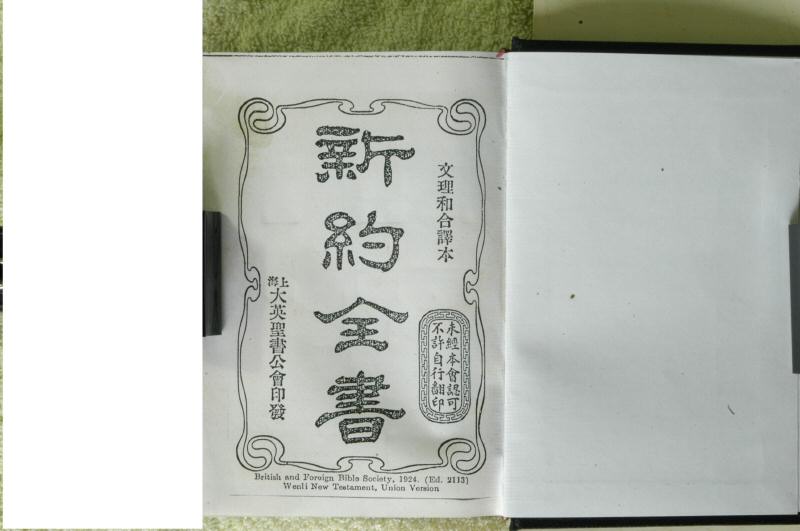 文理和合譯本
新約全書
未經本會認可
不許自行翻印
上海大英聖書公會印發
British and Foreign Bible Society, 1924. (Ed. 2113)
Wenli New Testament, Union Version